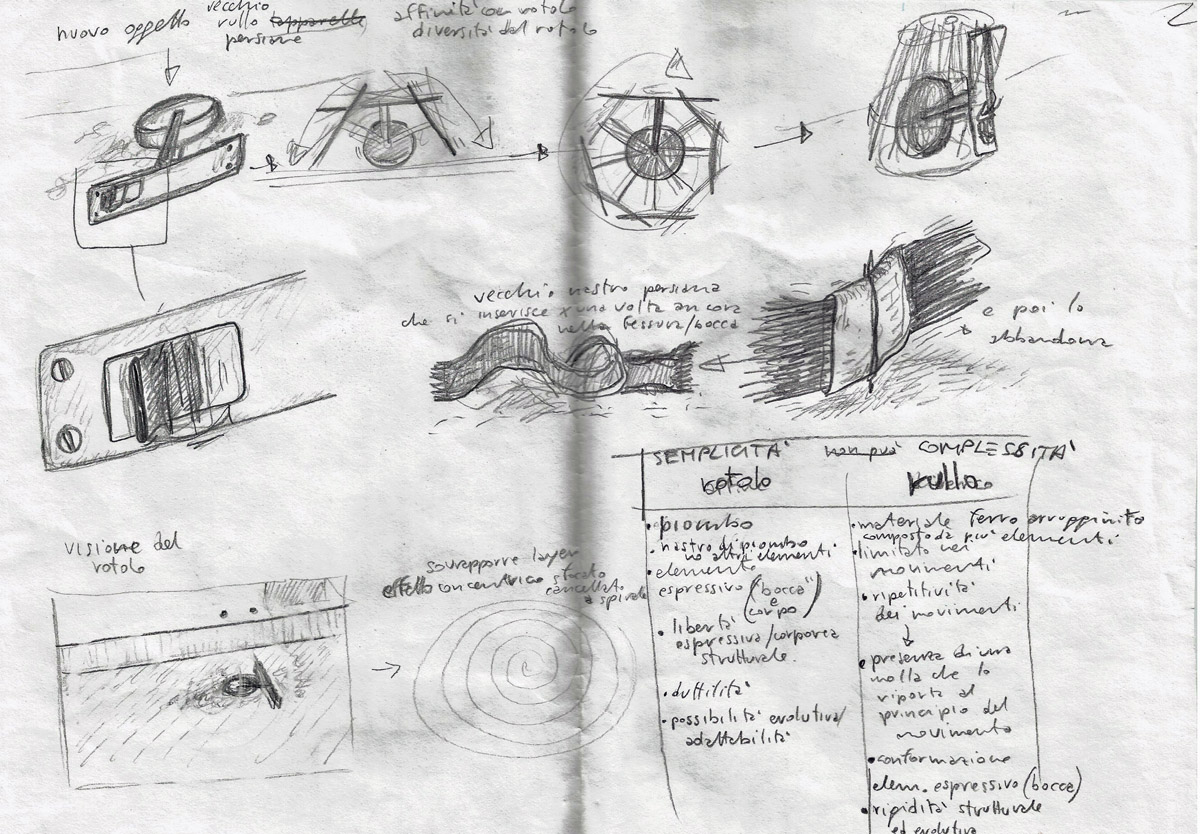 nuovo oggetto
vecchio
rullo tapparelle
persiane
affinità con rotolo
diversità dal rotolo
2
vecchio nastro persiana
che si inserisce x una volta ancora
nella fessura/bocca
e poi lo
abbandona
SEMPLICITA' non può COMPLESSITA'
rotolo
rullo
• piombo
• nastro di piombo
no altri elementi
• elemento
espressivo ("bocca"
e
corpo)
• libertà
espressiva/corporea
strutturale.
• duttilità
• possibilità evolutiva/
adattabilità
• materiale ferro arruginito
composto da più elementi
• limitato nei
movimenti
• ripetitività
dei movimenti
• presenza di una
molla che lo
riporta al
principio del
movimento
• conformazione
elem. espressivo (bocca)
• rigidità strutturale
ed evolutiva
visione del
rotolo
sovrapporre layer
effetto concentrico sfocato
cancellato
a spirale